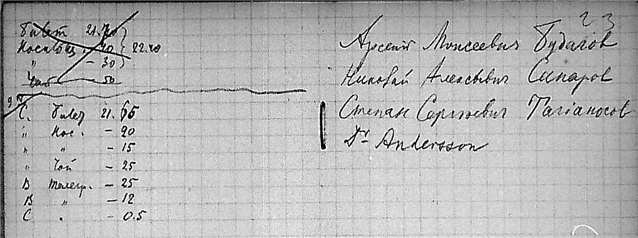 Билет 21.70
Носильщ. 40 } 22.40
" - 30
Чай - 50
С. Билет 21.65
" Нос. - 20
" " - 15
" Чай - 25
В телегр. - 25
В " - 12
С " - 0.5
23
Арсений Моисеевич Будагов
Николай Алексеевич Синаров
Степан Сергеевич Татианосов
Dr Andersson